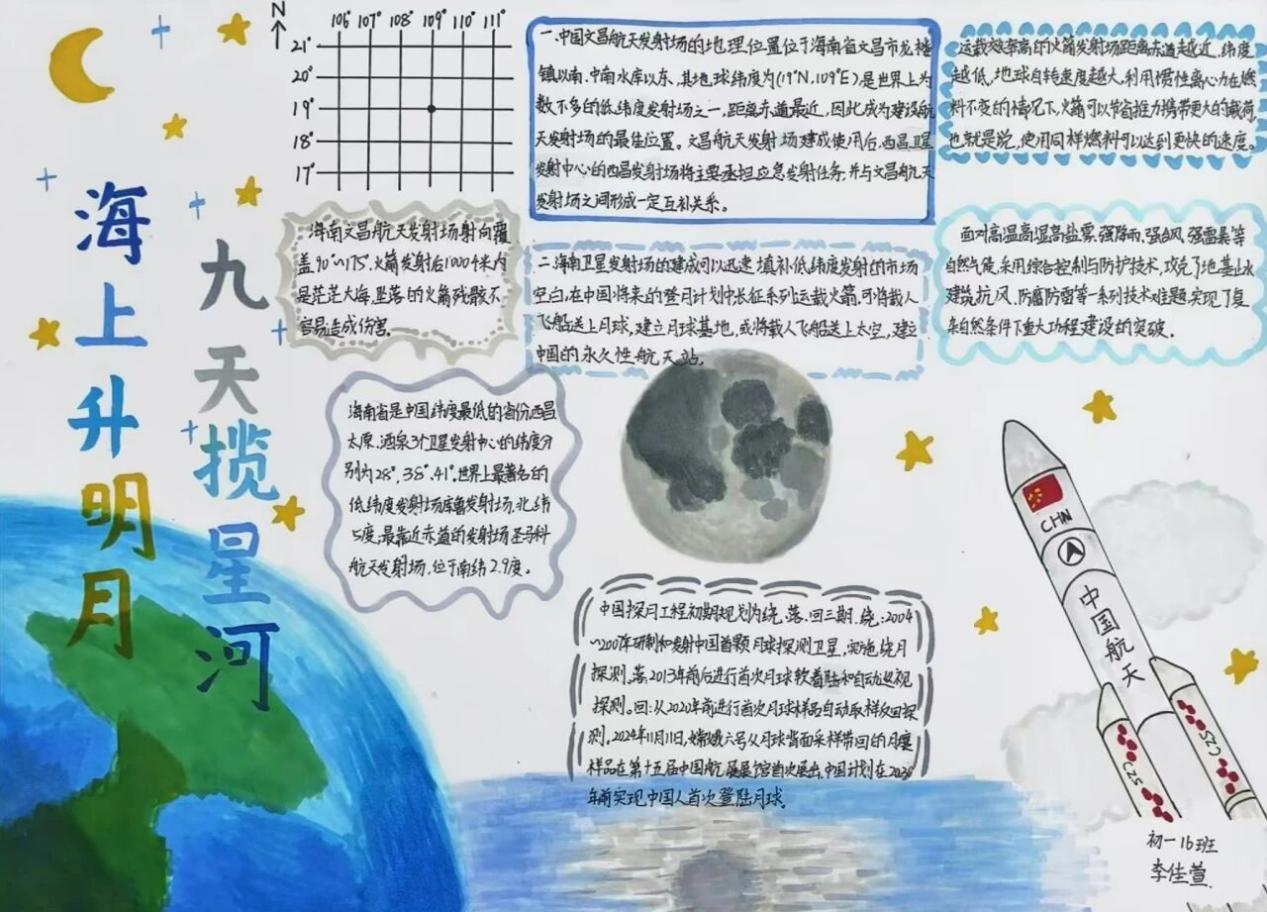 海上升明月
九天揽星河
N
106° 107° 108° 109° 110° 111°
21°
20°
19°
18°
17°
一.中国文昌航天发射场的地理位置位于海南省文昌市龙楼
镇以南.中南水库以东,其地球纬度为(19°N,109°E),是世界上为
数不多的低纬度发射场之一,距离赤道最近,因此成为建设航
天发射场的最佳位置。文昌航天发射场建成使用后,西昌卫星
发射中心的西昌发射场将主要承担应急发射任务,并与文昌航天
发射场之间形成一定互补关系。
运载效率高的火箭发射场距离赤道越近,纬度
越低,地球自转速度越大,利用惯性离心力在燃
料不变的情况下,火箭可以节省推力携带更大的载荷,
也就是说,使用同样燃料可以达到更快的速度。
海南文昌航天发射场射向覆
盖90°~175°,火箭发射后1000千米内
是茫茫大海,坠落的火箭残骸不
容易造成伤害。
二.海南卫星发射场的建成可以迅速填补低纬度发射的市场
空白,在中国将来的登月计划中长征系列运载火箭,可将载人
飞船送上月球,建立月球基地,或将载人飞船送上太空,建立
中国的永久性航天站。
面对高温高湿高盐雾,强降雨,强台风,强雷暴等
自然气候,采用综合控制与防护技术,攻克了地基止水
建筑抗风、防腐防雷等一系列技术难题,实现了复
杂自然条件下重大功程建设的突破。
海南省是中国纬度最低的省份西昌
太原.酒泉3个卫星发射中心的纬度分
别为28°,38°,41°.世界上最著名的
低纬度发射场库鲁发射场,北纬
5度,最靠近赤道的发射场圣马科
航天发射场,位于南纬2.9度。
中国探月工程初期规划为绕、落、回三期.绕:2004
~2007年研制和发射中国首颗月球探测卫星,实施绕月
探测。落:2013年前后进行首次月球软着陆和自动巡视
探测。回:从2020年前进行首次月球样品自动取样返回探
测。2024年11月11日,嫦娥六号从月球背面采样带回的月壤
样品在第十五届中国航展展馆首次展出.中国计划在2030
年前实现中国人首次登陆月球。
CHN
中国航天
CZ5
CZ5
初一16班
李佳萱